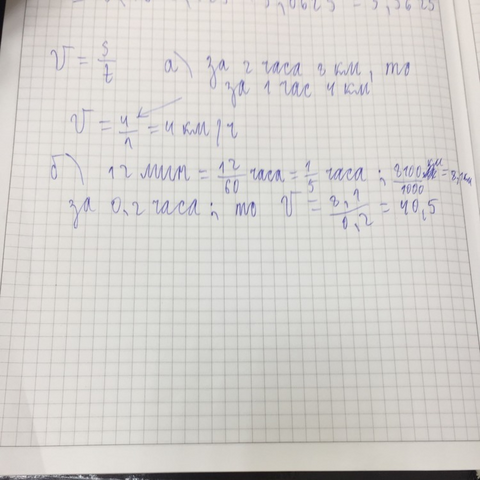 V = s/t а) за 2 часа 8 км, то
за 1 час 4 км
V = 4/1 = 4 км/ч
б) 12 мин = 12/60 часа = 1/5 часа ; 8100/1000 = 8,1 км
за 0,2 часа ; то V = 8,1/0,2 = 40,5